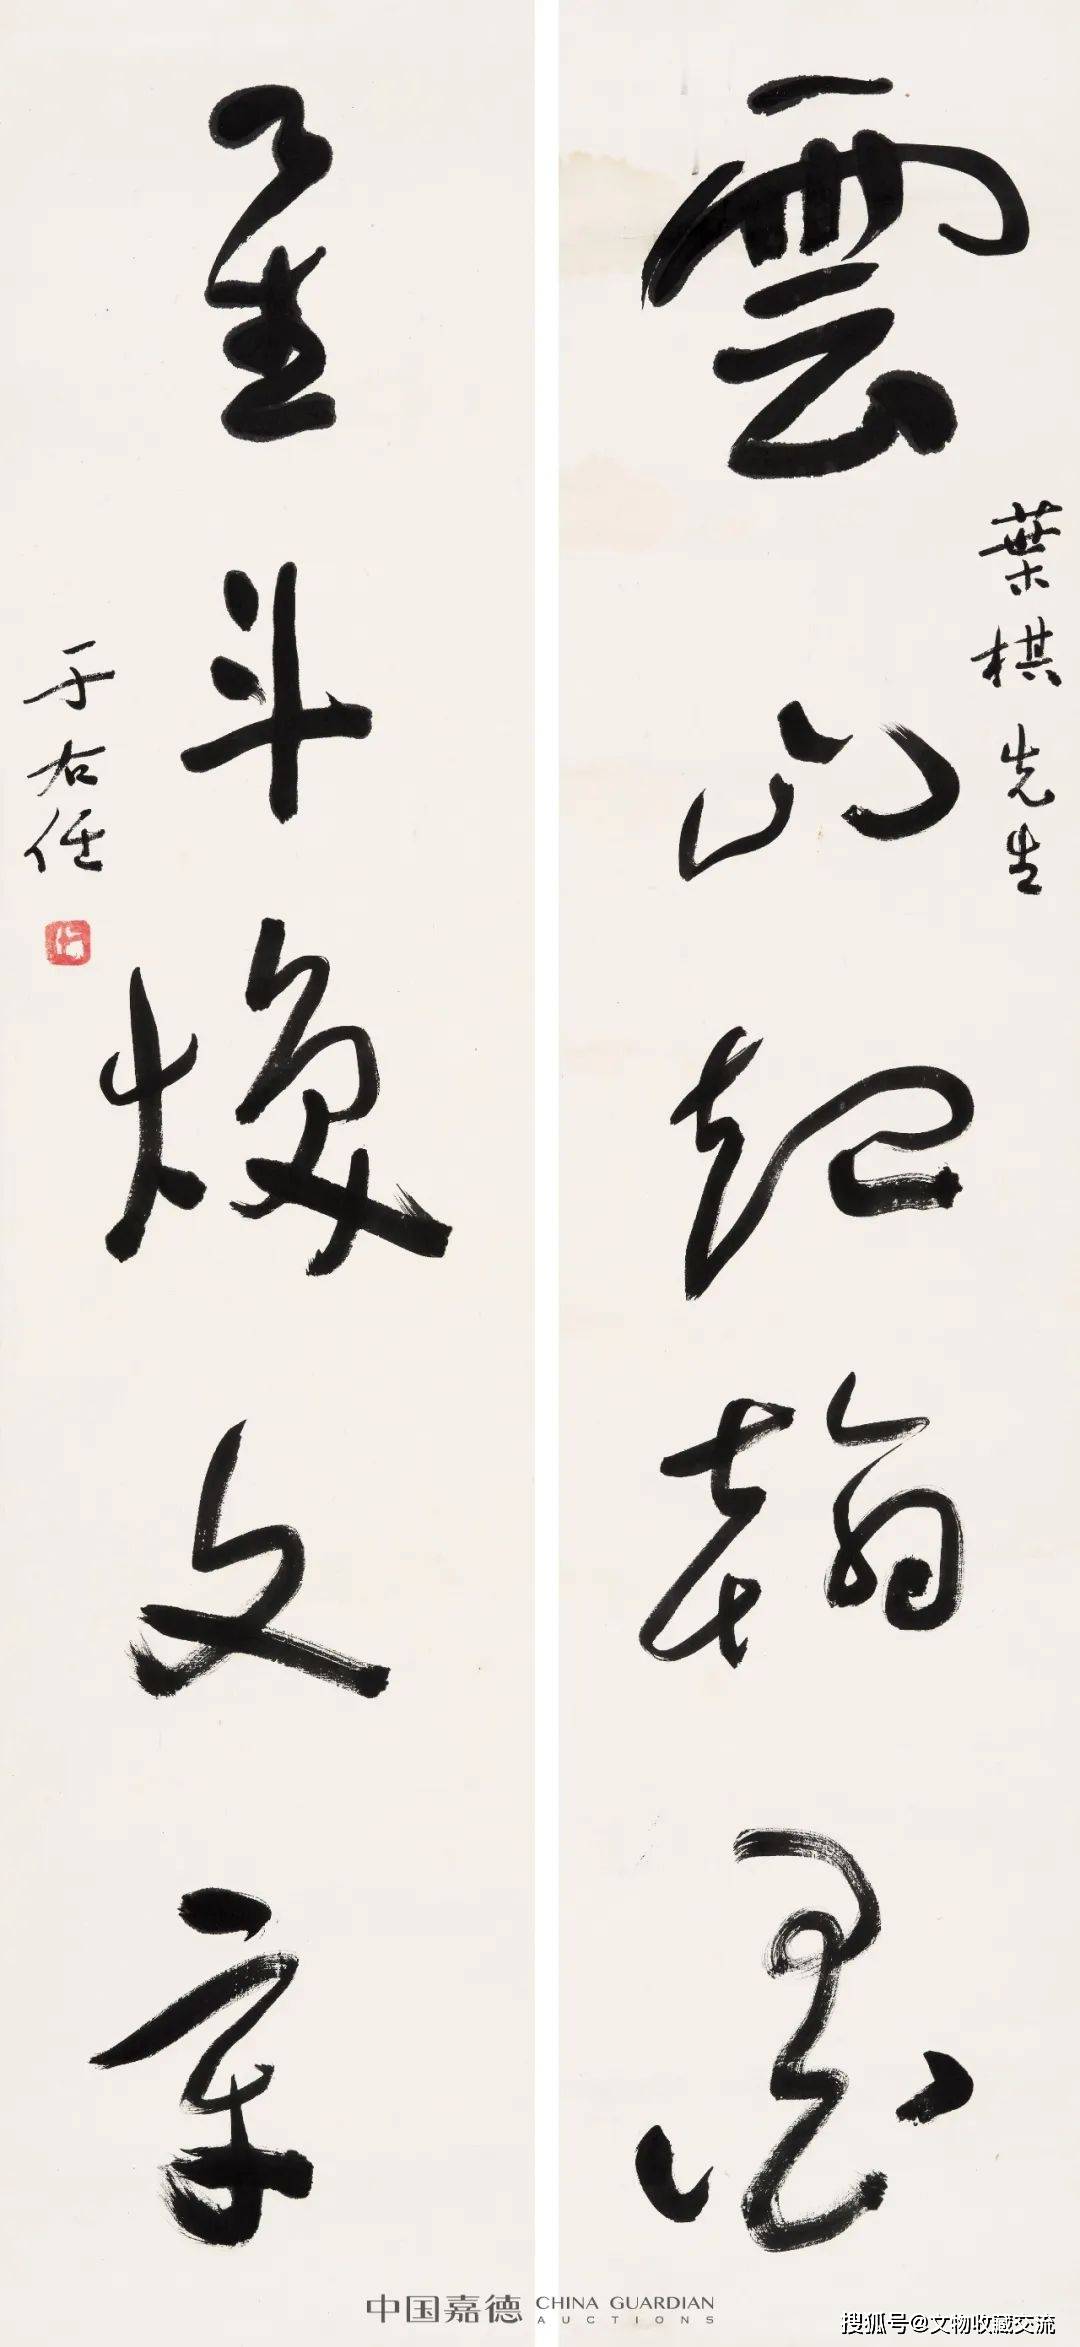 雲山起翰墨
葉棋先生
星斗煥文章
于右任
中国嘉德 CHINA GUARDIAN
AUCTIONS
搜狐号@文物收藏交流